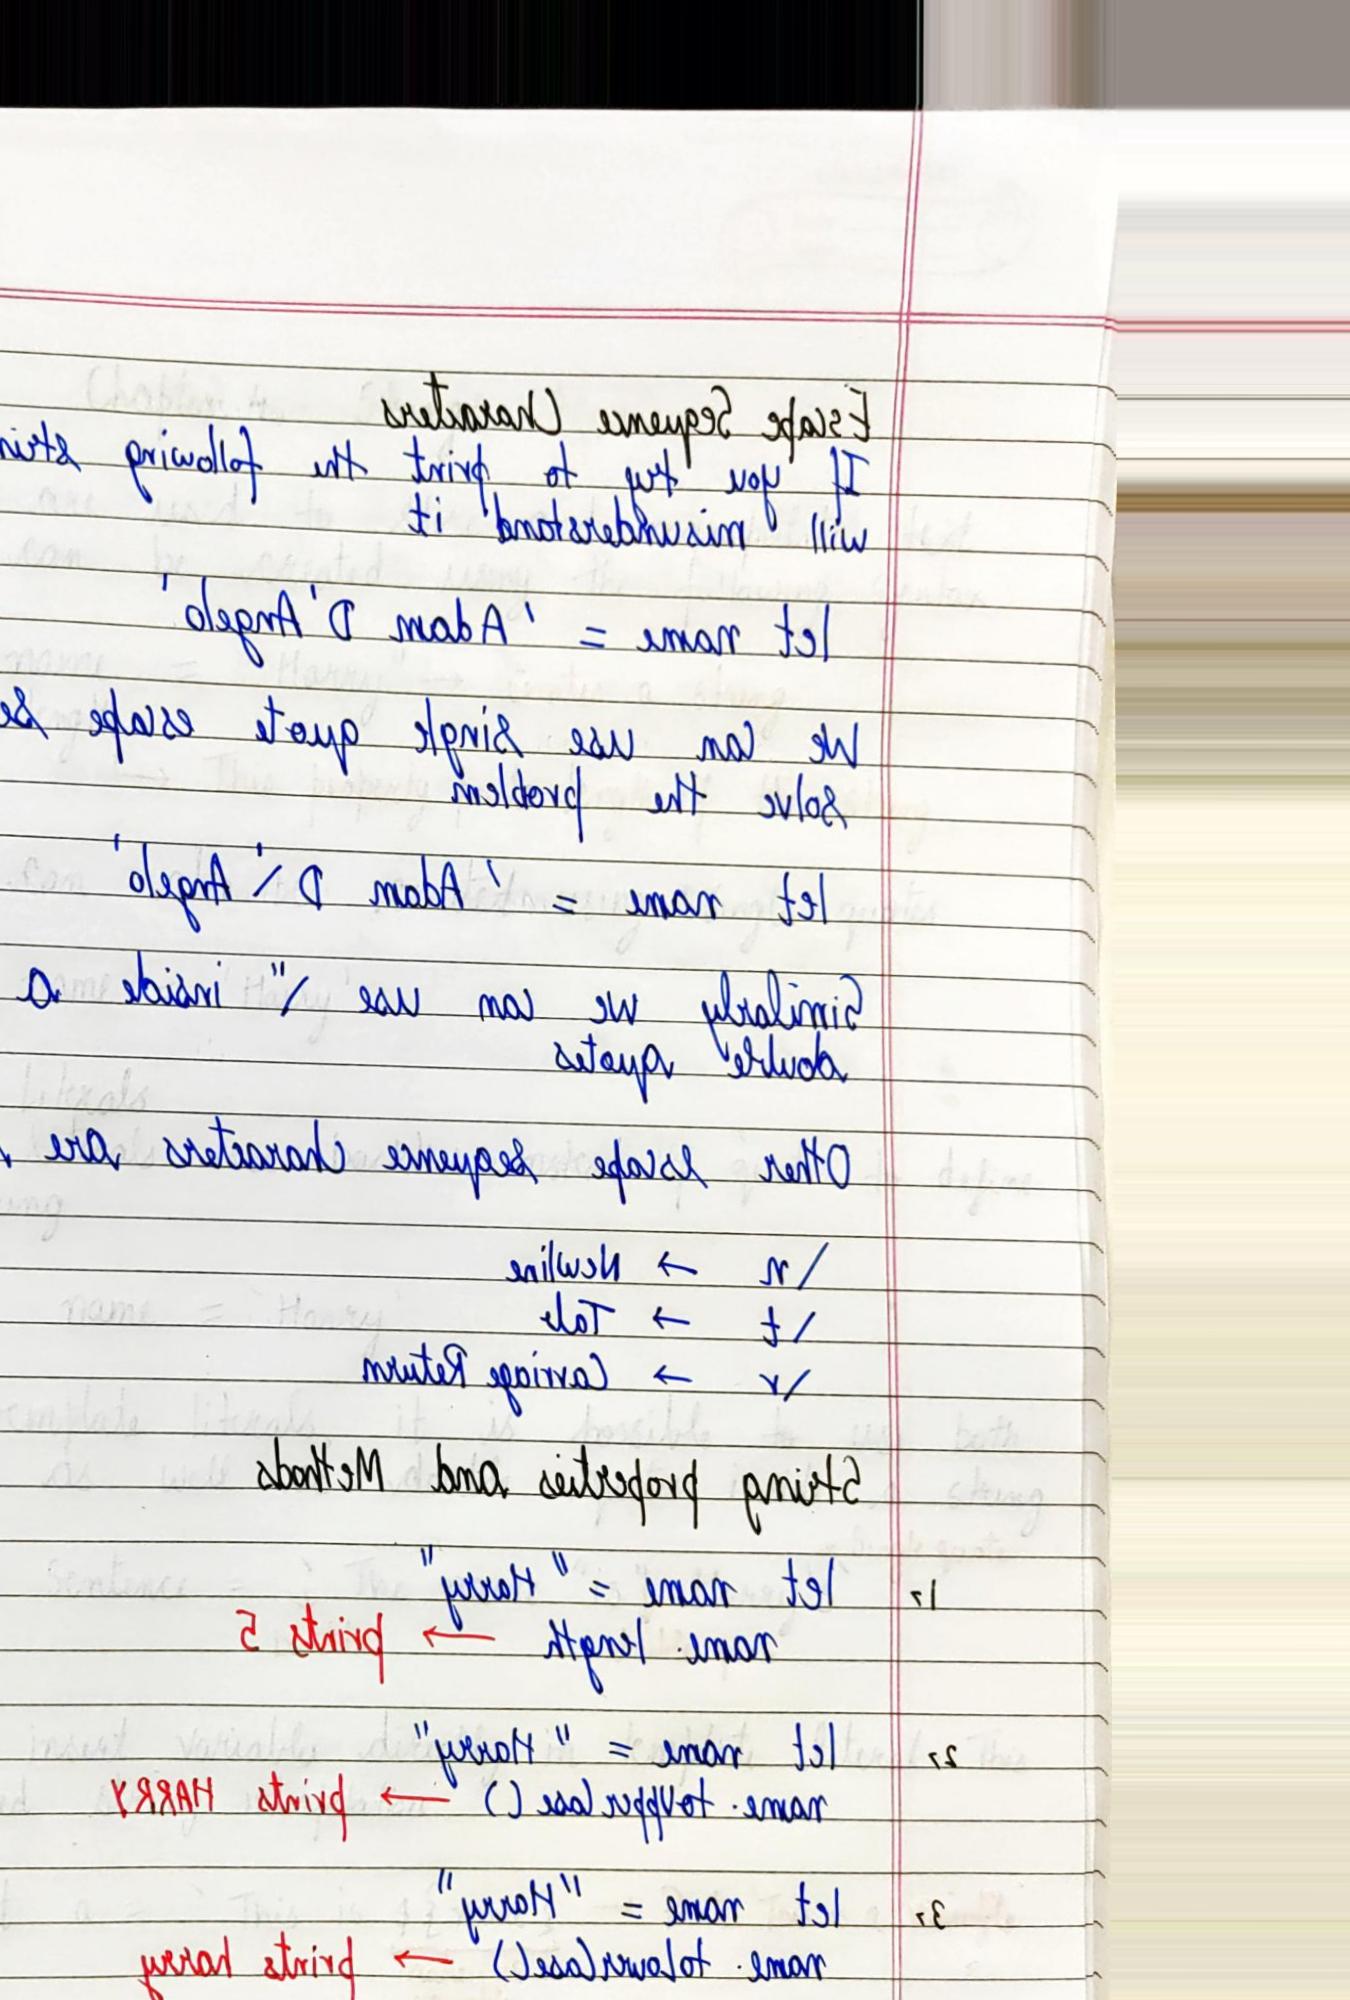 Escape Sequence Characters
If you try to print the following strin
will misunderstand it
let name = 'Adam D'Angelo'
We can use single quote escape se
solve the problem
let name = 'Adam D\'Angelo'
Similarly we can use \" inside a
double quotes
Other escape sequence characters are
\n → Newline
\t → Tab
\r → Carriage Return
String properties and Methods
1, let name = "Harry"
name.length → prints 5
2, let name = "Harry"
name.toUpperCase() → prints HARRY
3, let name = "Harry"
name.toLowerCase() → prints harry